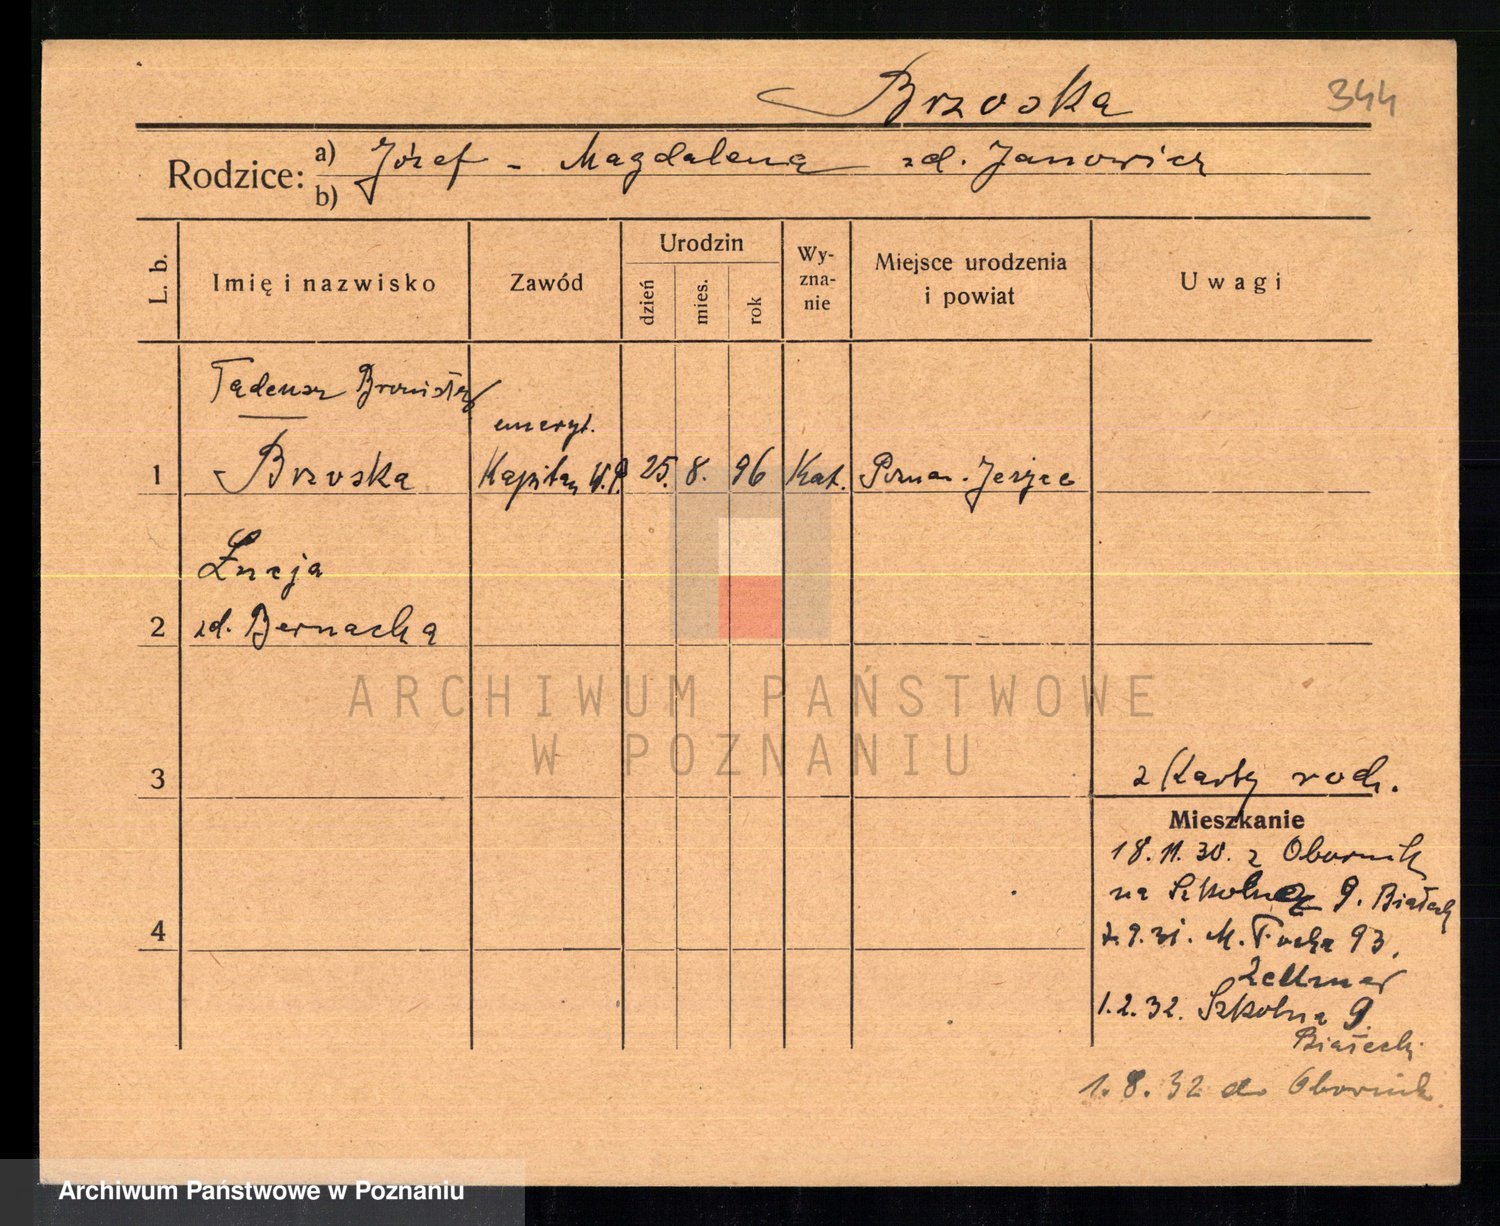 Brzoska 344
Rodzice: a) Józef - Magdalena zd. Janowicz
b)
L. b.
Imię i nazwisko
Zawód
Urodzin
dzień
mies.
rok
Wy-
zna-
nie
Miejsce urodzenia
i powiat
Uwagi
Tadeusz Bronisław
emeryt.
1 Brzoska Kapitan W.P. 25. 8. 96 Kat. Poznań-Jeżyce
Łucja
2 zd. Bernacka
ARCHIWUM PAŃSTWOWE
W POZNANIU
3
z Karty rodz.
Mieszkanie
18.11.30. z Obornik
na Szkolną 9. Białecki
4
9.31. M. Focha 93.
Zellmer
1.2.32. Szkolna 9
Białecki
1.8.32 do Obornik
Archiwum Państwowe w Poznaniu